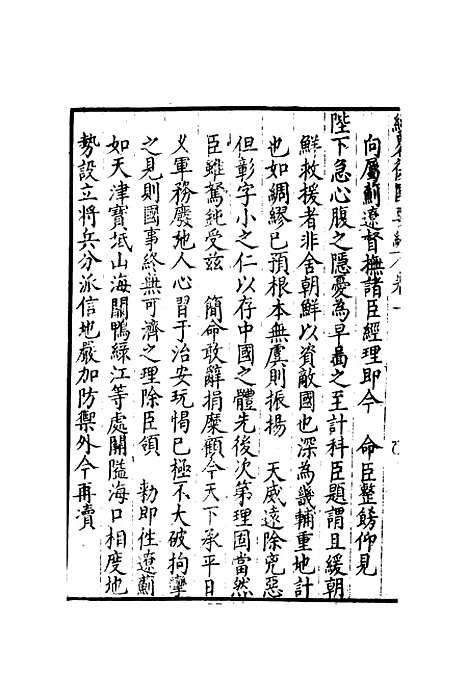 向屬薊遼督撫諸臣經理即今　命臣整飭仰見
陛下急心腹之隱憂為早啚之至計科臣題謂且緩朝
鮮救援者非舍朝鮮以資敵國也深為畿輔重地計
也如綢繆已預根本無虞則振揚　天威遠除兇惡
但彰字小之仁以存中國之體先後次第理固當然
臣雖駑鈍受茲　簡命敢辭捐糜顧今天下承平日
乆軍務廢弛人心習于治安玩愒已極不大破拘攣
之見則國事終無可濟之理除臣領　勑即往遼薊
如天津寶坻山海關鴨綠江等處關隘海口相度地
勢設立將兵分派信地嚴加防禦外今再瀆